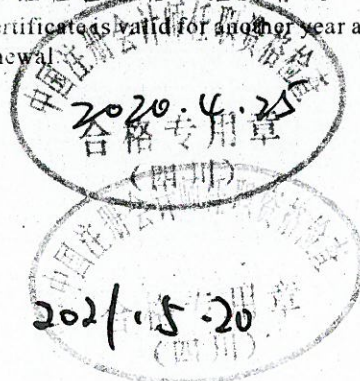 ertificate is valid for another year a
newal.
中国注册会计师任职资格检查
2020.4.25
合格专用章
(四川)
中国注册会计师任职资格检查
2021.5.20
合格专用章
(四川)